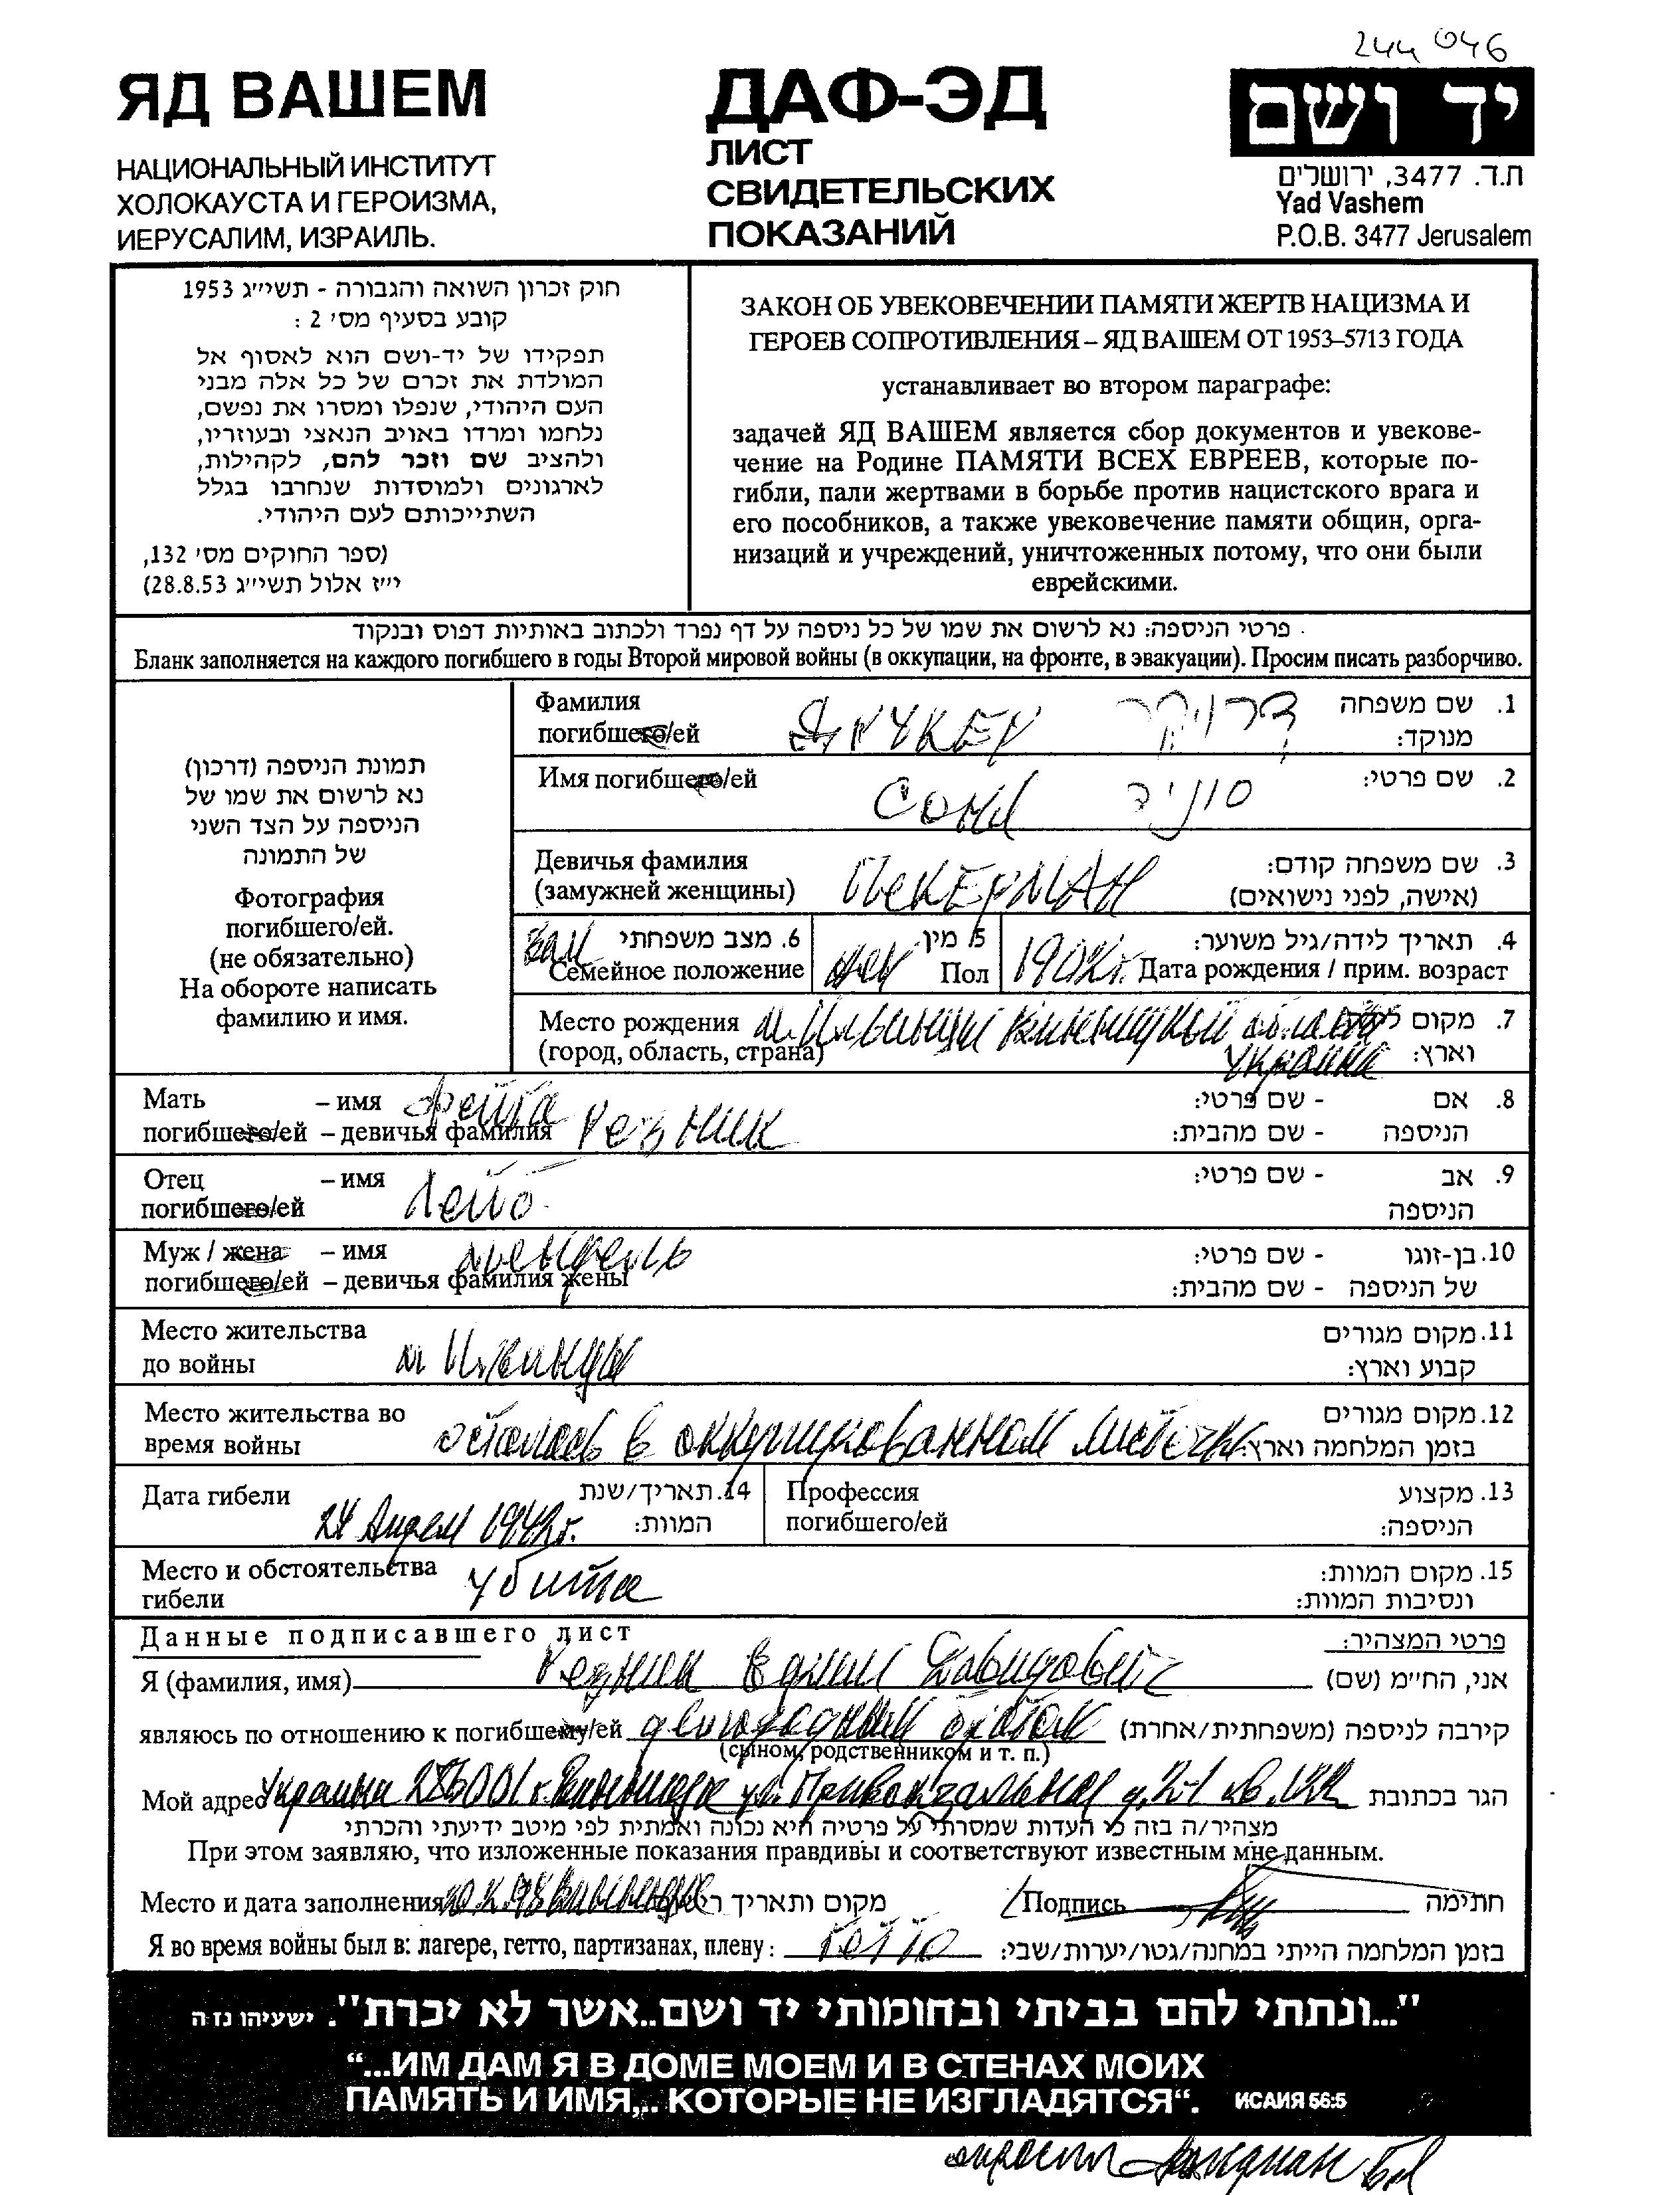 244 046
ЯД ВАШЕМ
НАЦИОНАЛЬНЫЙ ИНСТИТУТ
ХОЛОКАУСТА И ГЕРОИЗМА,
ИЕРУСАЛИМ, ИЗРАИЛЬ.
ДАФ-ЭД
ЛИСТ
СВИДЕТЕЛЬСКИХ
ПОКАЗАНИЙ
יד ושם
ת.ד. 3477, ירושלים
Yad Vashem
P.O.B. 3477 Jerusalem
חוק זכרון השואה והגבורה - תשי״ג 1953
קובע בסעיף מס׳ 2 :
תפקידו של יד-ושם הוא לאסוף אל
המולדת את זכרם של כל אלה מבני
העם היהודי, שנפלו ומסרו את נפשם,
נלחמו ומרדו באויב הנאצי ובעוזריו,
ולהציב שם וזכר להם, לקהילות,
לארגונים ולמוסדות שנחרבו בגלל
השתייכותם לעם היהודי.
(ספר החוקים מס׳ 132,
י״ז אלול תשי״ג 28.8.53)
ЗАКОН ОБ УВЕКОВЕЧЕНИИ ПАМЯТИ ЖЕРТВ НАЦИЗМА И
ГЕРОЕВ СОПРОТИВЛЕНИЯ – ЯД ВАШЕМ ОТ 1953–5713 ГОДА
устанавливает во втором параграфе:
задачей ЯД ВАШЕМ является сбор документов и увекове-
чение на Родине ПАМЯТИ ВСЕХ ЕВРЕЕВ, которые по-
гибли, пали жертвами в борьбе против нацистского врага и
его пособников, а также увековечение памяти общин, орга-
низаций и учреждений, уничтоженных потому, что они были
еврейскими.
פרטי הניספה: נא לרשום את שמו של כל ניספה על דף נפרד ולכתוב באותיות דפוס ובנקוד
Бланк заполняется на каждого погибшего в годы Второй мировой войны (в оккупации, на фронте, в эвакуации). Просим писать разборчиво.
תמונת הניספה (דרכון)
נא לרשום את שמו של
הניספה על הצד השני
של התמונה
Фотография
погибшего/ей.
(не обязательно)
На обороте написать
фамилию и имя.
Фамилия
погибшего/ей ДРУКЕР דרויקר 1. שם משפחה
מנוקד:
Имя погибшего/ей Соня סוניה 2. שם פרטי:
Девичья фамилия 3. שם משפחה קודם:
(замужней женщины) ПЕКЕРМАН (אישה, לפני נישואים)
зам 6. מצב משפחתי 5 מין 4. תאריך לידה/גיל משוער:
Семейное положение жен Пол 1902г. Дата рождения / прим. возраст
Место рождения м. Ильинцы Винницкой области 7. מקום לידה
(город, область, страна) Украина וארץ:
Мать – имя Фейга 8. אם - שם פרטי:
погибшего/ей – девичья фамилия Резник הניספה - שם מהבית:
Отец – имя Лейб 9. אב - שם פרטי:
погибшего/ей הניספה
Муж / жена – имя Мендель 10. בן-זוגו - שם פרטי:
погибшего/ей – девичья фамилия жены של הניספה - שם מהבית:
Место жительства 11. מקום מגורים
до войны м Ильинцы קבוע וארץ:
Место жительства во 12. מקום מגורים
время войны осталась в оккупированном местечке בזמן המלחמה וארץ:
Дата гибели 14. תאריך/שנת Профессия 13. מקצוע
24 Апреля 1942г. המוות: погибшего/ей הניספה:
Место и обстоятельства 15. מקום המוות:
гибели убита ונסיבות המוות:
Данные подписавшего лист פרטי המצהיר:
Я (фамилия, имя) Резник Давидович אני, החי״מ (שם)
являюсь по отношению к погибшему/ей двоюродный братом קירבה לניספה (משפחתית/אחרת)
(сыном, родственником и т. п.)
Мой адрес Украина г. Винница ул. Привокзальная הגר בכתובת
מצהיר/ה בזה כי העדות שמסרתי על פרטיה היא נכונה ואמתית לפי מיטב ידיעתי והכרתי
При этом заявляю, что изложенные показания правдивы и соответствуют известным мне данным.
Место и дата заполнения Винница מקום ותאריך Подпись חתימה
Я во время войны был в: лагере, гетто, партизанах, плену: Гетто בזמן המלחמה הייתי במחנה/גטו/יערות/שבי:
"...ונתתי להם בביתי ובחומותי יד ושם..אשר לא יכרת". ישעיהו נז ה
“...ИМ ДАМ Я В ДОМЕ МОЕМ И В СТЕНАХ МОИХ
ПАМЯТЬ И ИМЯ,.. КОТОРЫЕ НЕ ИЗГЛАДЯТСЯ“. ИСАИЯ 56:5